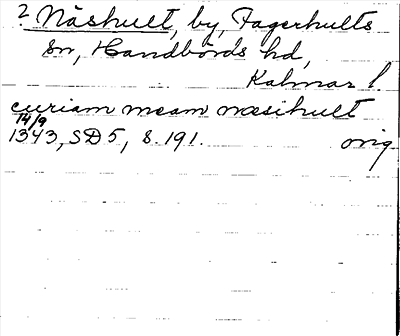 2 Näshult, by, Fagerhults
sn, Handbörds hd,
Kalmar l.
curiam meam næsihult
14/9
1343, SD 5, s. 191. orig